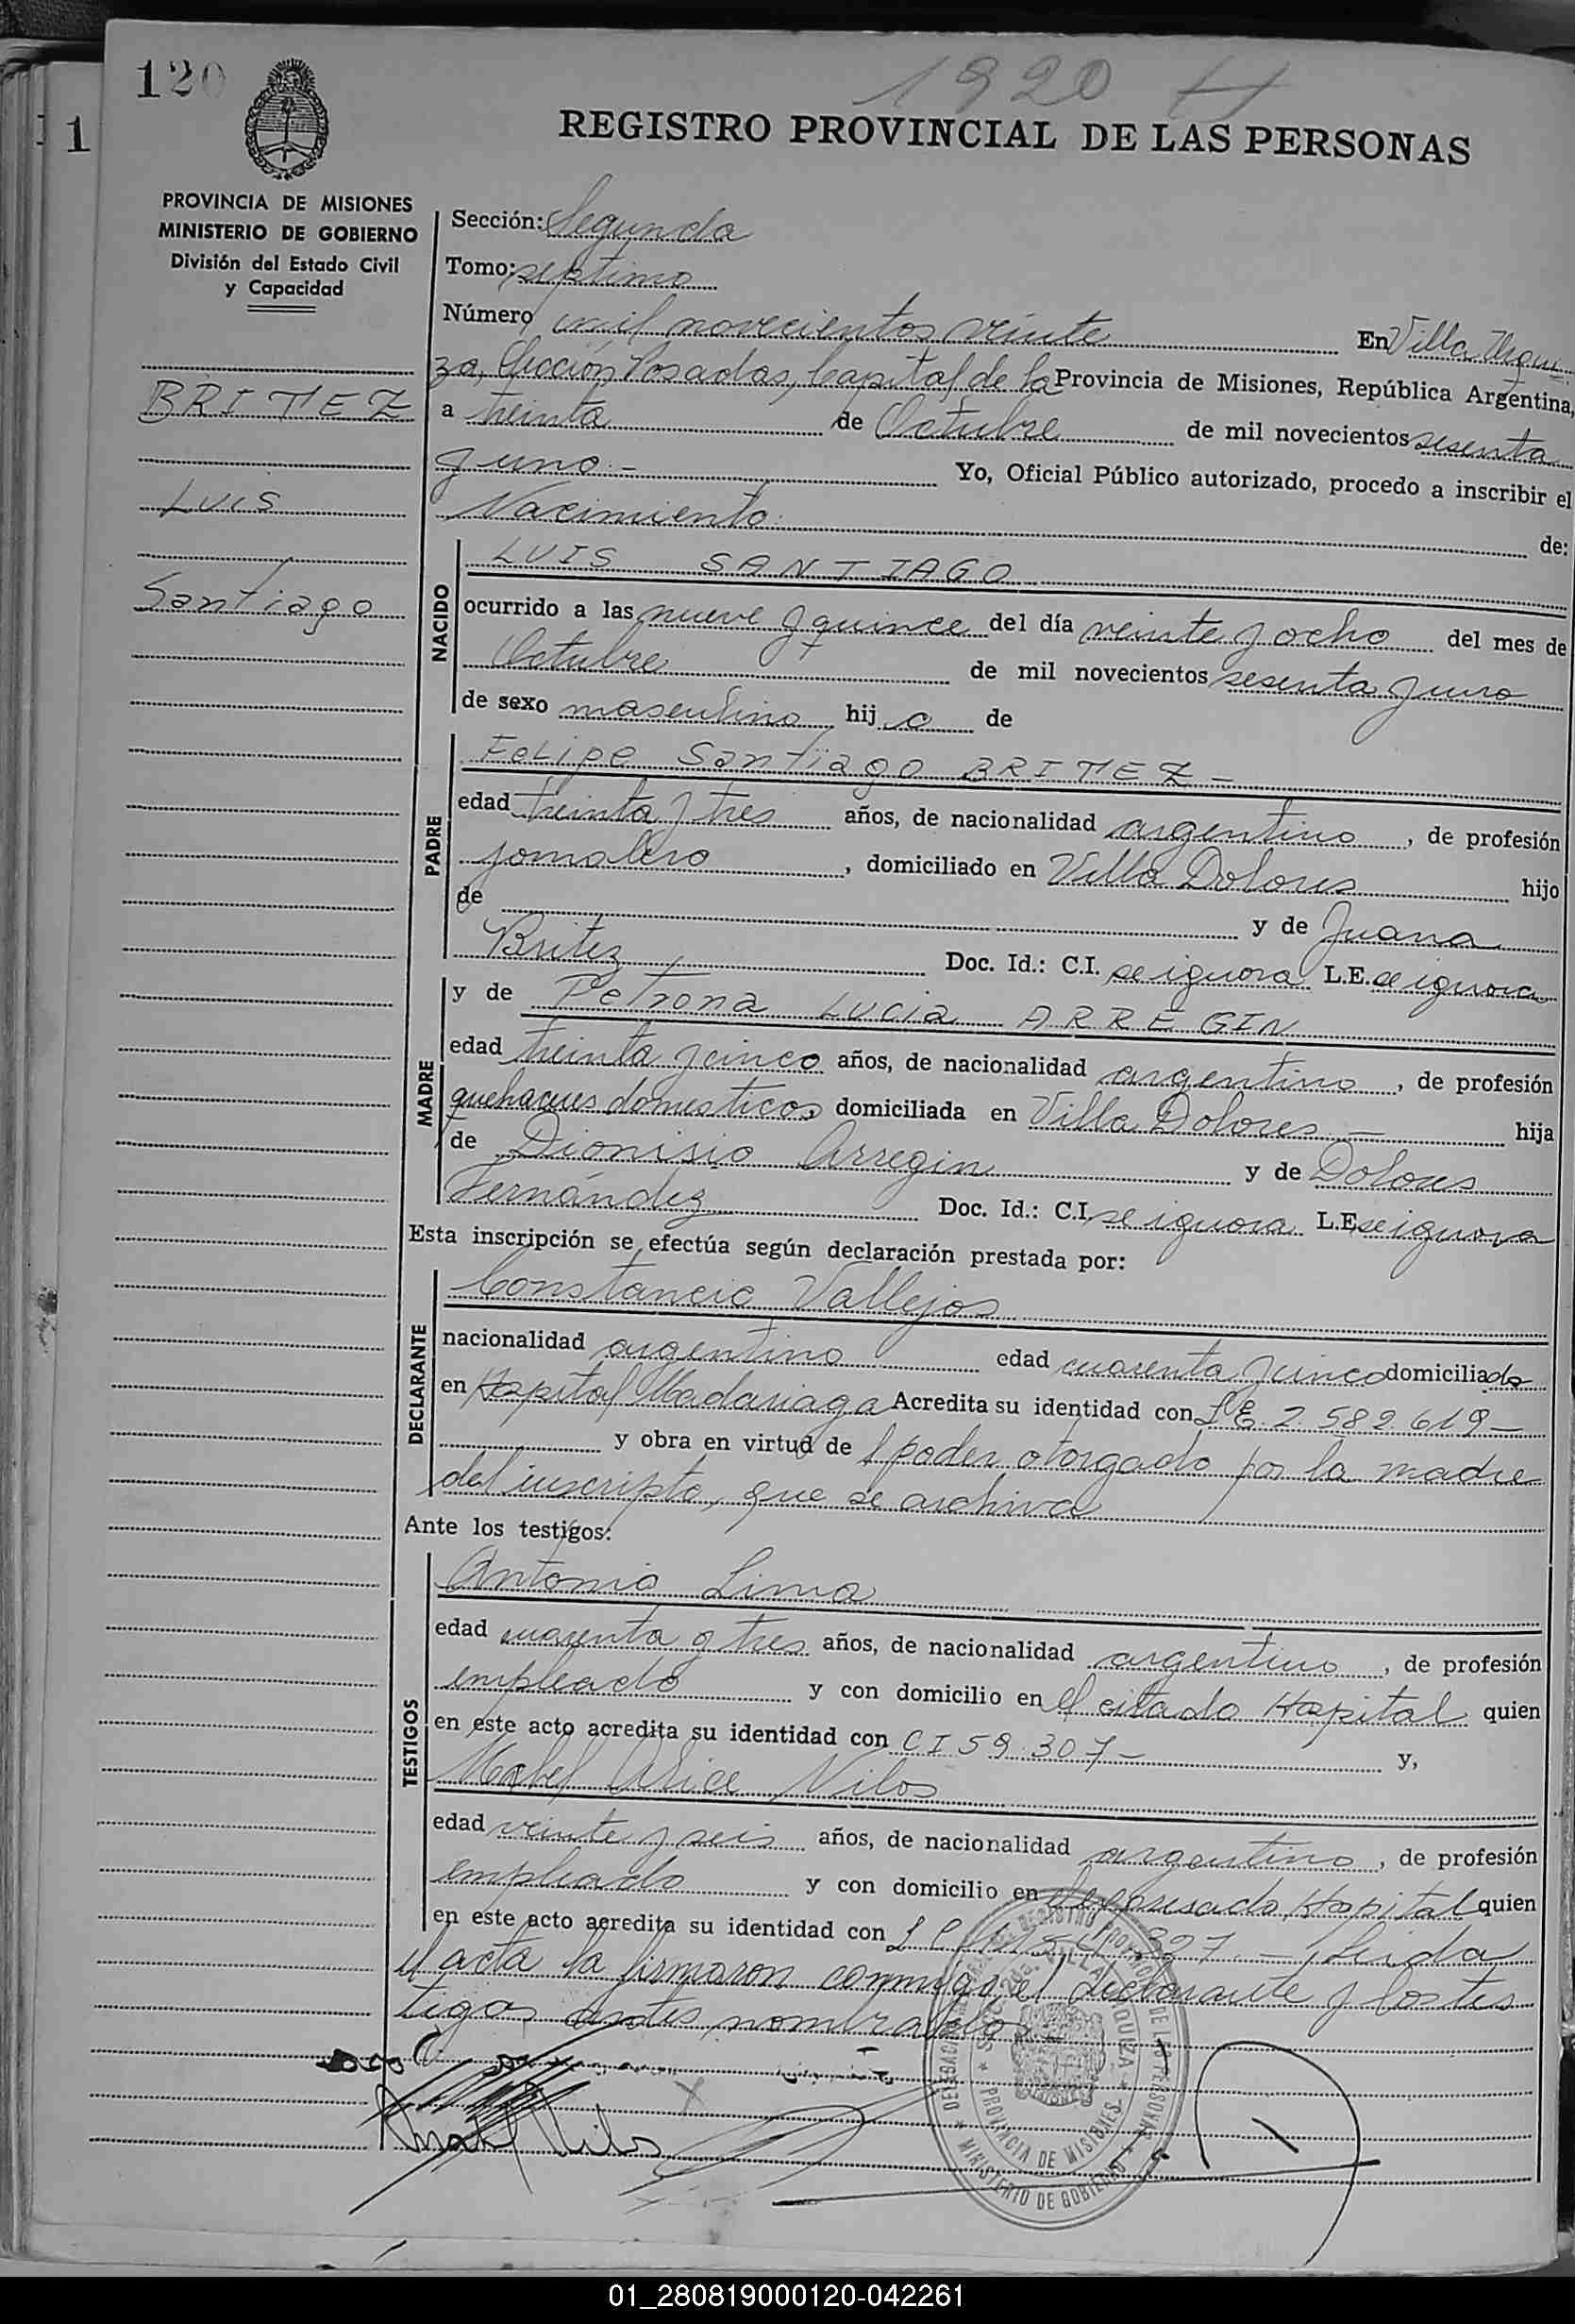 120
1920 H
1
REGISTRO PROVINCIAL DE LAS PERSONAS
PROVINCIA DE MISIONES
MINISTERIO DE GOBIERNO
División del Estado Civil
y Capacidad
BRITEZ
LUIS
Santiago
Sección: Segunda
Tomo: septimo
Número mil novecientos veinte En Villa Urqui
za, Sección Posadas, Capital de la Provincia de Misiones, República Argentina,
a treinta de Octubre de mil novecientos sesenta
y uno.- Yo, Oficial Público autorizado, procedo a inscribir el
Nacimiento de:
NACIDO
LUIS SANTIAGO
ocurrido a las nueve y quince del día veinte y ocho del mes de
Octubre de mil novecientos sesenta y uno
de sexo masculino hij o de
PADRE
Felipe Santiago BRITEZ -
edad treinta y tres años, de nacionalidad argentino, de profesión
jornalero, domiciliado en Villa Dolores hijo
de y de Juana
Britez Doc. Id.: C.I. se ignora L.E. se ignora
MADRE
y de Petrona Lucia ARREGIN
edad treinta y cinco años, de nacionalidad argentino, de profesión
quehaceres domesticos, domiciliada en Villa Dolores - hija
de Dionisio Arregin y de Dolores
Fernández Doc. Id.: C.I. se ignora L.E. se ignora
Esta inscripción se efectúa según declaración prestada por:
DECLARANTE
Constancio Vallejos
nacionalidad argentino edad cuarenta y cinco domiciliado
en Hospital Madariaga Acredita su identidad con L E. 2.582.619 -
y obra en virtud de l poder otorgado por la madre
del inscripto, que se archiva
Ante los testigos:
TESTIGOS
Antonio Lima
edad cuarenta y tres años, de nacionalidad argentino, de profesión
empleado y con domicilio en el citado Hospital quien
en este acto acredita su identidad con C I 59.307 - y,
Mabel Alice Vilos
edad veinte y seis años, de nacionalidad argentino, de profesión
empleado y con domicilio en el expresado Hospital quien
en este acto acredita su identidad con L C 327 - Leida
el acta la firmaron conmigo, el declarante y los tes
tigos antes nombrados
REGISTRO PROVINCIAL DE LAS PERSONAS
MINISTERIO DE GOBIERNO
PROVINCIA DE MISIONES
01_280819000120-042261